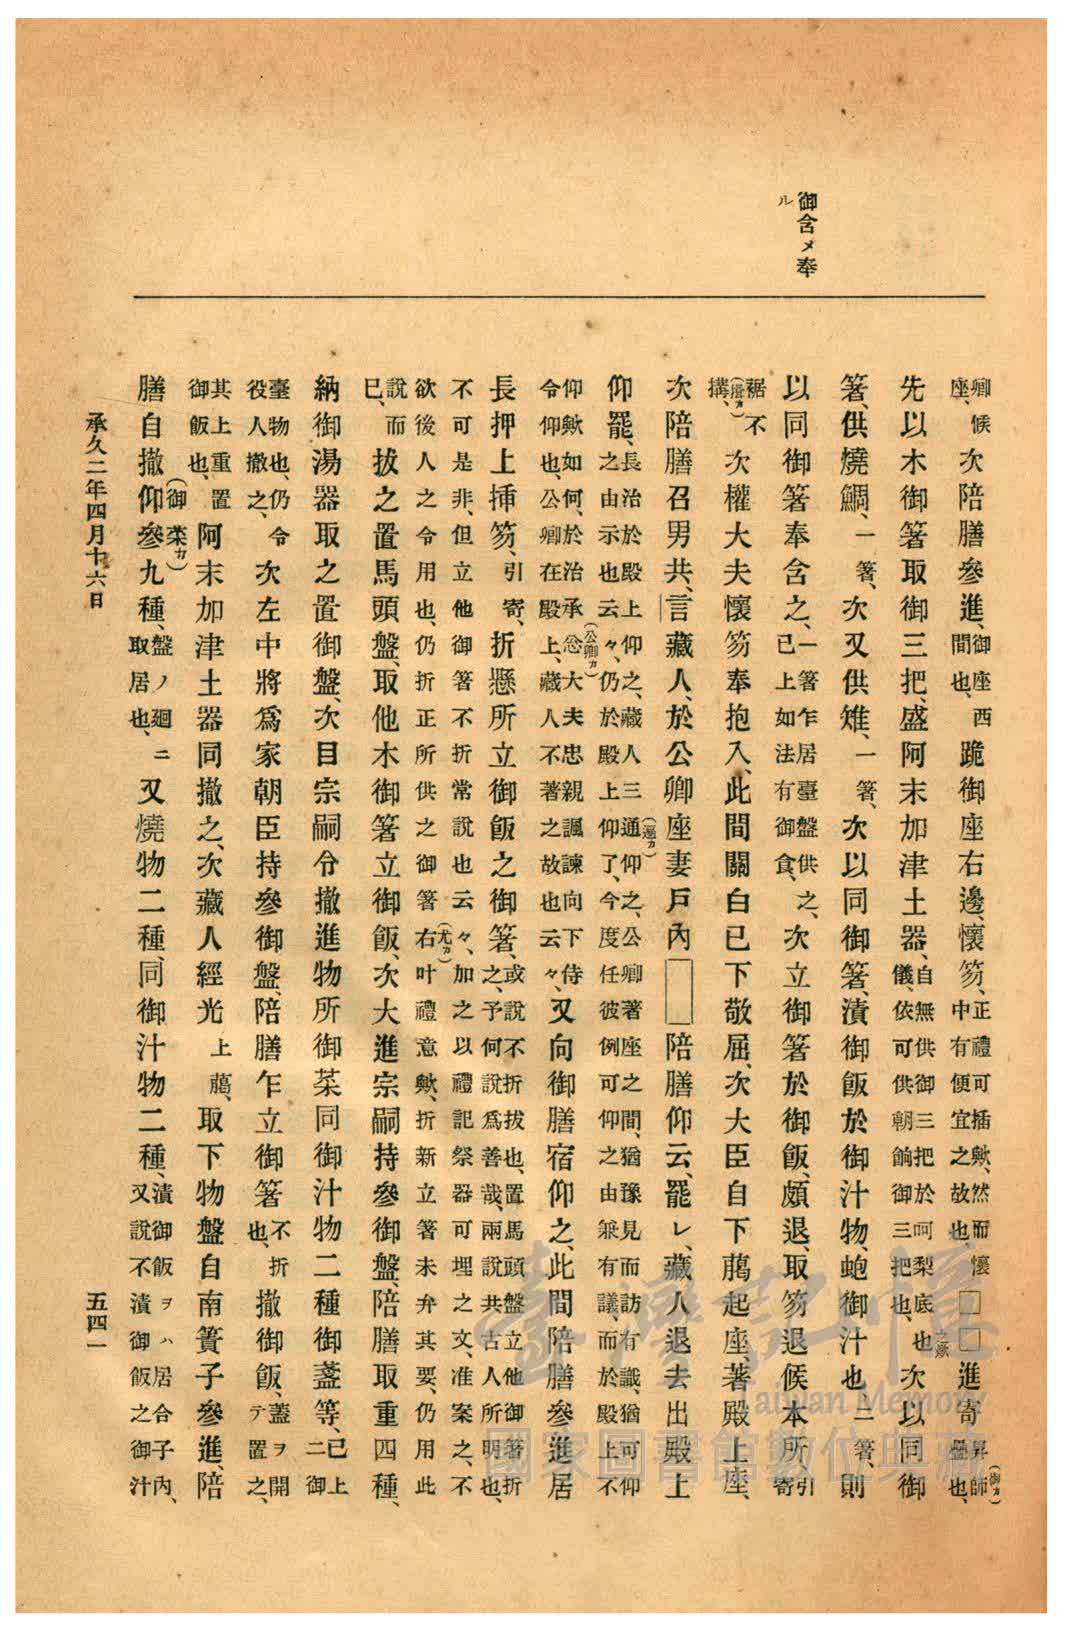 御含メ奉
ル
卿候座、次陪膳參進、御座西間也、跪御座右邊、懷笏、正禮可插歟、然而懷中有便宜之故也、□□進寄昇師(御カ)疊也、
先以木御箸取御三把、盛阿末加津土器、自無供御三把於呵梨底、也之歟儀、依可供朝餉御三把也、次以同御
箸、供燒鯛、一箸、次又供雉、一箸、次以同御箸、漬御飯於御汁物、蚫御汁也、二箸、則
以同御箸奉含之、一箸乍居臺盤供之、已上如法有御食、次立御箸於御飯、頗退、取笏退候本所、引寄
裾不(裾カ)搆、次權大夫懷笏奉抱入、此間關白已下敬屈、次大臣自下﨟起座、著殿上座、
次陪膳召男共、言藏人、於公卿座妻戶內□陪膳仰云、罷レ、藏人退去出殿上
仰罷、長治於殿上仰之、藏人三通(遍カ)仰之、公卿著座之間、猶豫見而訪有識、猶可仰之由示也云々、仍於殿上仰了、今度任彼例可仰之由兼有議、而於殿上不
仰歟如何、於治承(公卿カ)忩大夫忠親諷諫向下侍令仰也、公卿在殿上、藏人不著之故也云々、又向御膳宿仰之、此間陪膳參進居
長押上揷笏、引寄、折懸所立御飯之御箸、或說不折拔也、置馬頭盤立他御箸折之、予何說爲善哉、兩說共古人所明也、
不可是非、但立他御箸不折常說也云々、加之以禮記祭器可埋之文、准案之、不
欲後人之令用也、仍折正所供之御箸右(尤カ)叶禮意歟、折新立箸未弁其要、仍用此
說而已、拔之置馬頭盤、取他木御箸立御飯、次大進宗嗣持參御盤、陪膳取重四種、
納御湯器取之置御盤、次目宗嗣令撤進物所御菜同御汁物二種御盞等、已上二御
臺物也、仍令役人撤之、次左中將爲家朝臣持參御盤、陪膳乍立御箸不折也、撤御飯、蓋ヲ開テ置之、
其上重置御飯也、阿末加津土器同撤之、次藏人經光上﨟、取下物盤自南簀子參進、陪
膳自撤仰(御菜カ)參九種、盤ノ廻ニ取居也、又燒物二種、同御汁物二種、漬御飯ヲハ居合子內、又說不漬御飯之御汁
承久二年四月十六日
五四一
臺灣記憶
Taiwan Memory
國家圖書館數位典藏